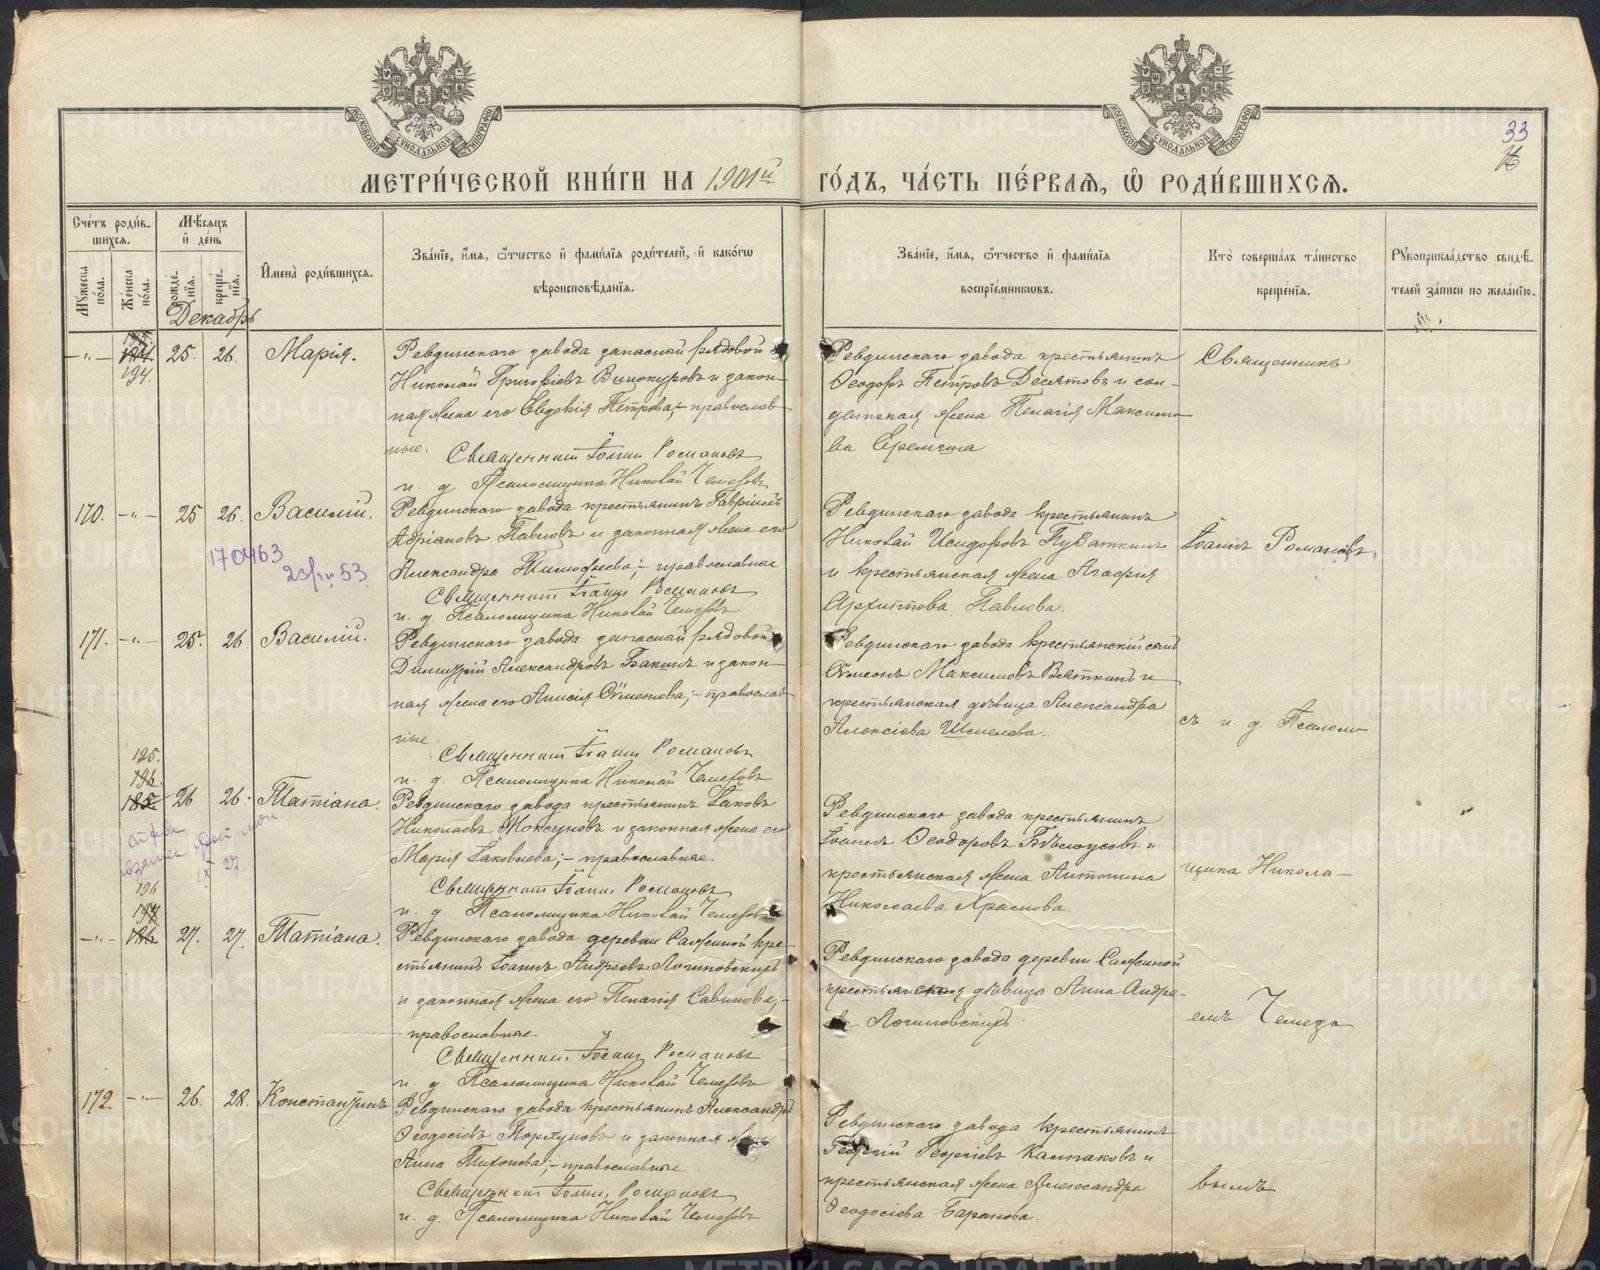 МОСКОВСКОЙ СѴНОДАЛЬНОЙ ТИПОГРАФІИ
МОСКОВСКОЙ СѴНОДАЛЬНОЙ ТИПОГРАФІИ
33
МЕТРИ́ЧЕСКОЙ КНИ́ГИ НА 1901й ГО́ДЪ, ЧА́СТЬ ПЕ́РВАЯ, Ѡ РОДИ́ВШИХСЯ.
Сче́тъ роди́в-
шихся.
Мꙋ́жеска по́ла.
Же́нска по́ла.
Мѣ́сяцъ
и҆ де́нь
рожде́-
нїя.
креще́-
нїя.
И҆мена̀ роди́вшихся.
Зва́нїе, и҆́мя, ѻ҆́тчество и҆ фами́лїя роди́телей, и҆ како́гѡ
вѣроисповѣ́данїя.
Зва́нїе, и҆́мя, ѻ҆́тчество и҆ фами́лїя
воспрїе́мникѡвъ.
Кто̀ соверша́лъ та́инство
креще́нїя.
Рꙋкоприкла́дство свидѣ́-
телей за́писи по жела́нїю.
Декабрь
—„— 194. 25. 26. Марія.
Ревдинскаго завода запасный рядовой
Николай Григоріевъ Винокуровъ и закон-
ная жена его Евдокія Петрова;- православ-
ные.
Священникъ Іоаннъ Романовъ
и. д. Псаломщика Николай Чемезовъ
Ревдинскаго завода крестьянинъ
Ѳеодоръ Петровъ Десятовъ и сол-
датская жена Пелагія Максимо-
ва Еремина
Священникъ
170. —„— 25 26. Василій.
170463
53
Ревдинскаго завода крестьянинъ Гавріилъ
Адріановъ Павловъ и законная жена его
Александра Тимофеева;- православные
Священникъ Іоаннъ Романовъ
и. д. Псаломщика Николай Чемезовъ
Ревдинскаго завода крестьянинъ
Николай Исидоровъ
и крестьянская жена Агафія
Архиппова Павлова.
Іоаннъ Романовъ
171. —„— 25. 26 Василій.
Ревдинскаго завода запасный рядовой
Димитрій Александровъ Бакинъ и закон-
ная жена его Анисія Сѵмеонова;- православ-
ные.
Священникъ Іоаннъ Романовъ
и. д. Псаломщика Николай Чемезовъ
Ревдинскаго завода крестьянскій сынъ
Сѵмеонъ Максимовъ Вяткинъ и
крестьянская дѣвица Александра
Алексіева Шмелева.
съ и. д. Псалом-
195.
196.
185
26 26. Татіана.
Ревдинскаго завода крестьянинъ Іаковъ
Николаевъ Моксуновъ и законная жена его
Марія Іаковлева;- православные.
Священникъ Іоаннъ Романовъ
и. д. Псаломщика Николай Чемезовъ
Ревдинскаго завода крестьянинъ
Іоаннъ Ѳеодоровъ Бѣлоусовъ и
крестьянская жена Антонина
Николаева Храмова.
щика Никола-
196
197
186
—„— 27. 27. Татіана.
Ревдинскаго завода деревни Сажиной кре-
стьянинъ Іоаннъ Андреевъ Логиновскихъ
и законная жена его Пелагія Савинова;-
православные
Священникъ Іоаннъ Романовъ
и. д. Псаломщика Николай Чемезовъ
Ревдинскаго завода деревни Сажиной
крестьянская дѣвица Анна Андре-
ва Логиновскихъ
емъ Чемезо-
172. —„— 26. 28. Константинъ
Ревдинскаго завода крестьянинъ Александръ
Ѳеодосіевъ Порхуновъ и законная жена
Анна Тихонова;- православные.
Священникъ Іоаннъ Романовъ
и. д. Псаломщика Николай Чемезовъ
Ревдинскаго завода крестьянинъ
Георгій Георгіевъ Калпаковъ и
крестьянская жена Александра
Ѳеодосіева Баранова.
вымъ